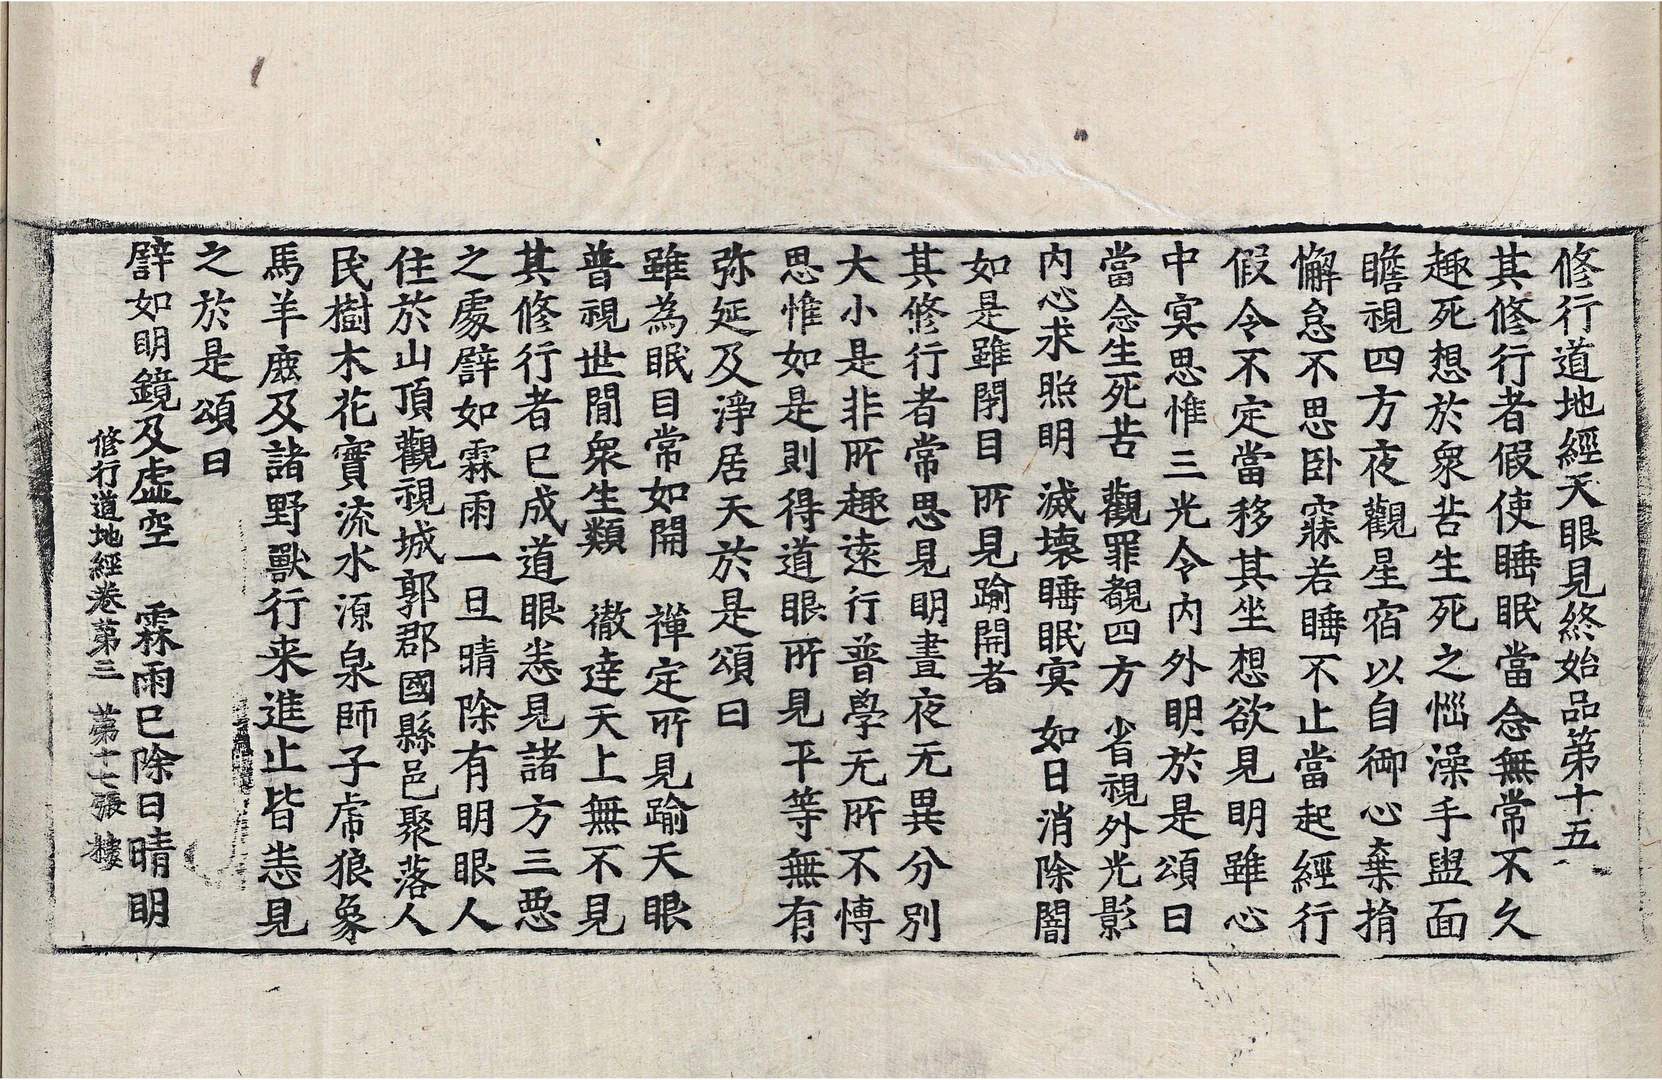 修行道地經天眼見終始品第十五
其修行者假使睡眠當念無常不久
趣死想於衆苦生死之惱澡手盥面
瞻視四方夜觀星宿以自御心棄捐
懈怠不思卧寐若睡不止當起經行
假令不定當移其坐想欲見明雖心
中冥思惟三光令内外明於是頌曰
當念生死苦 觀罪覩四方 省視外光影
内心求照明 滅壞睡眠冥 如日消除闇
如是雖閉目 所見踰開者
其修行者常思見明晝夜无異分別
大小是非所趣遠行普學无所不博
思惟如是則得道眼所見平等無有
弥延及淨居天於是頌曰
雖為眠目常如開 禪定所見踰天眼
普視世閒衆生類 徹達天上無不見
其修行者已成道眼悉見諸方三惡
之處譬如霖雨一旦晴除有明眼人
住於山頂觀視城郭郡國縣邑聚落人
民樹木花實流水源泉師子虎狼象
馬羊鹿及諸野獸行来進止皆悉見
之於是頌曰
譬如明鏡及虛空 霖雨已除日晴明
修行道地經卷第三 第十七張 樓